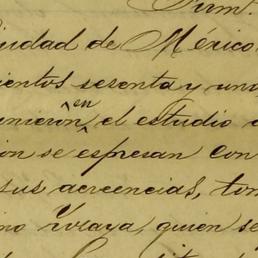 Ciudad de México
cientos sesenta y un
nieron en el estudio
ion se espresan con
sus acreencias, tom
no Yzaza, quien se